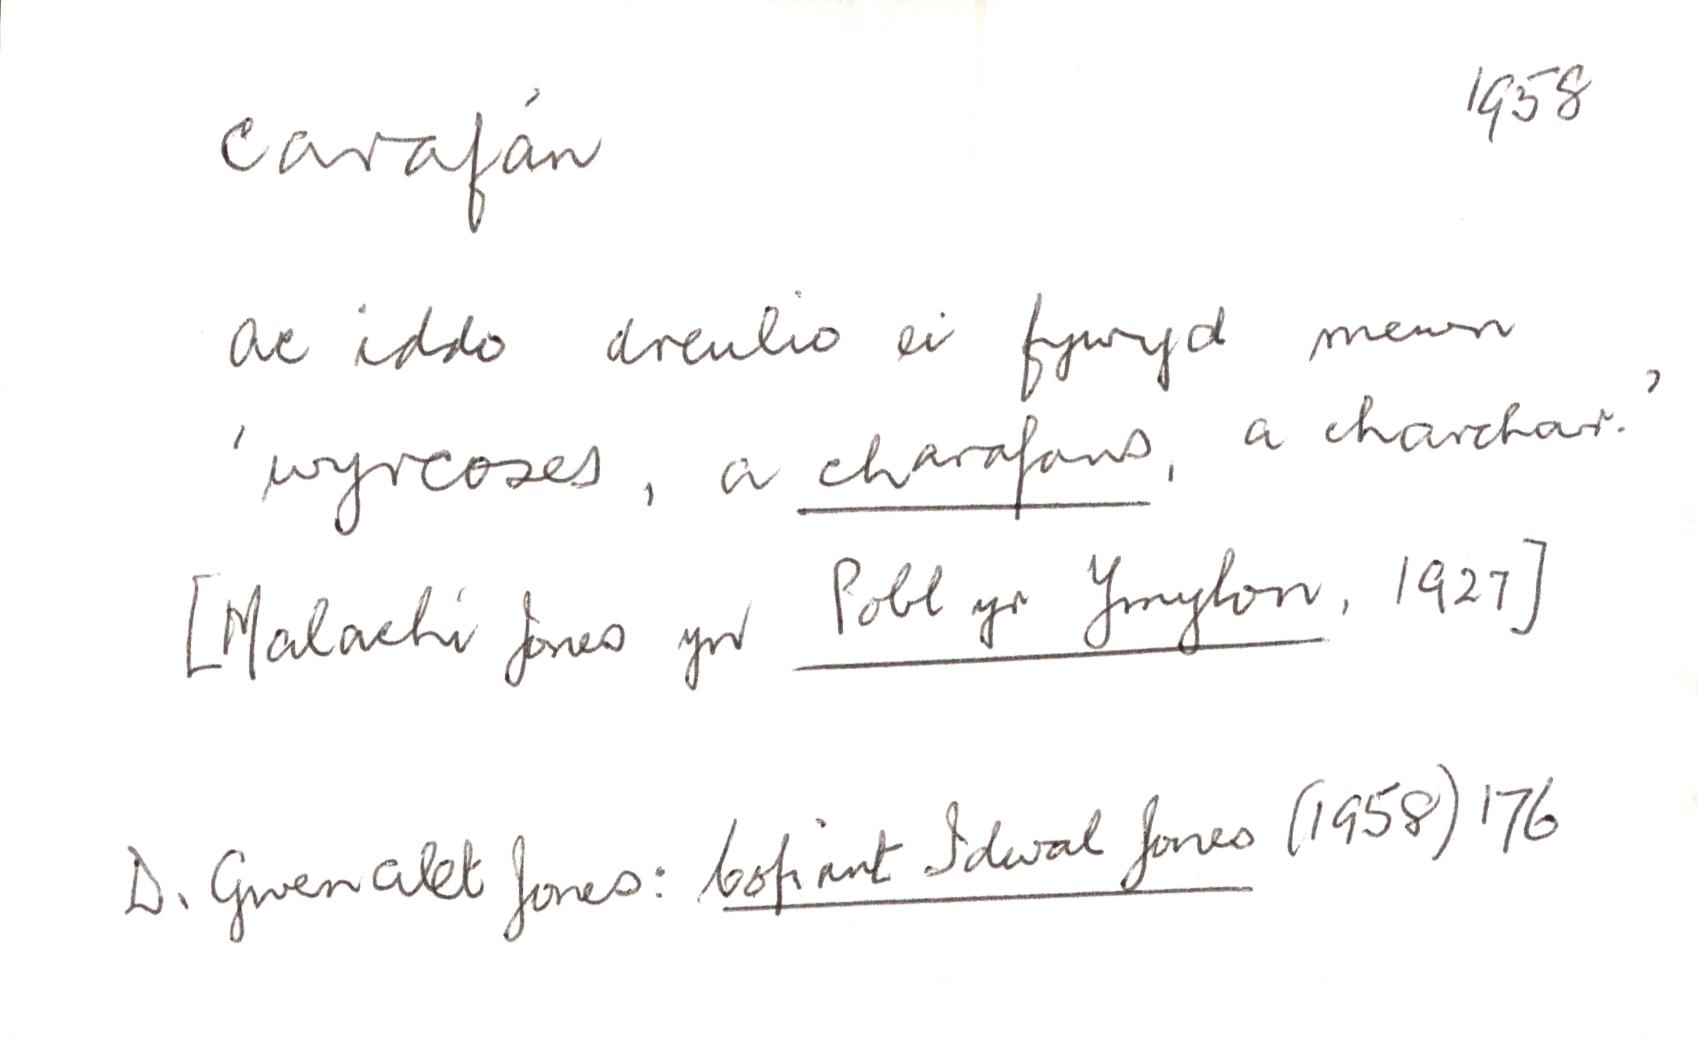 carafán 1958
ac iddo dreulio ei fywyd mewn
'wyrcoses, a charafans, a charchar.'
[Malachi Jones yn Pobl yr Ymylon, 1927]
D. Gwenallt Jones: Cofiant Idwal Jones (1958) 176